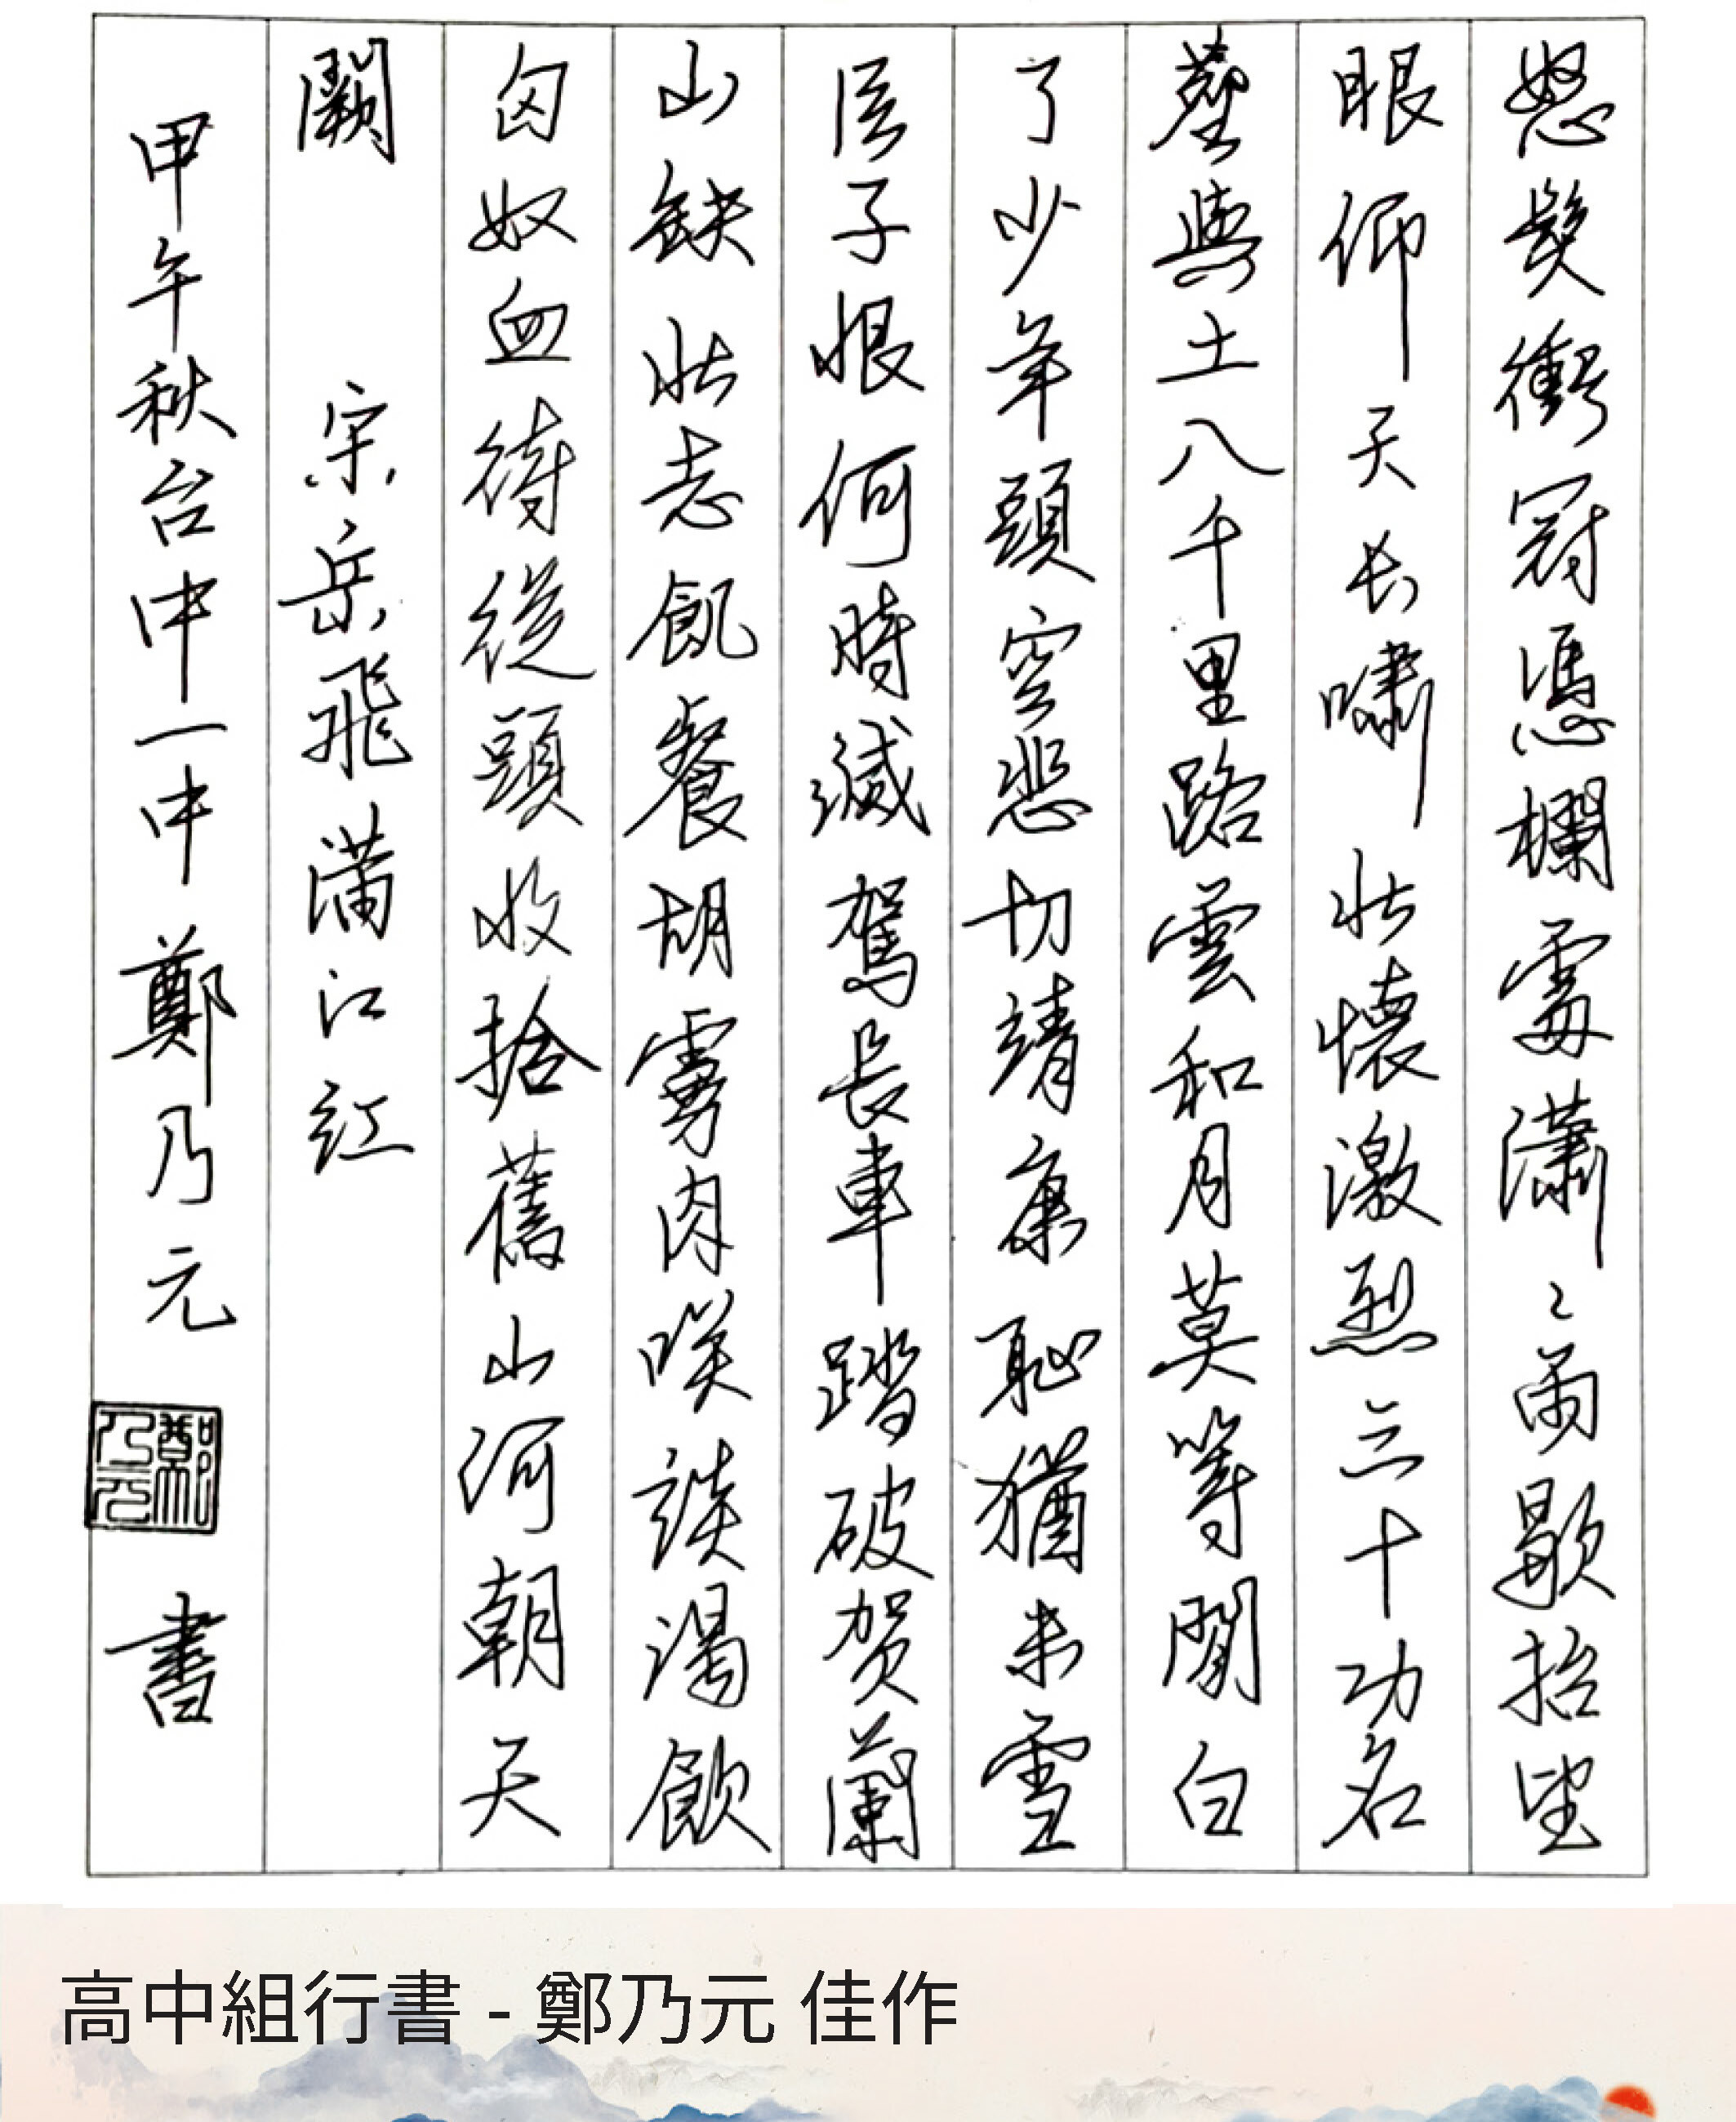 怒髮衝冠憑欄處瀟〻雨歇抬望
眼仰天長嘯壯懷激烈三十功名
塵與土八千里路雲和月莫等閒白
了少年頭空悲切靖康恥猶未雪
臣子恨何時滅駕長車踏破賀蘭
山缺壯志飢餐胡虜肉笑談渴飲
匈奴血待從頭收拾舊山河朝天
闕 宋岳飛滿江紅
甲午秋台中一中鄭乃元 書
鄭乃元
高中組行書 - 鄭乃元 佳作